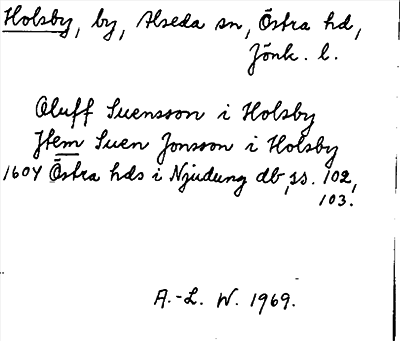 Holsby, by, Alseda sn, Östra hd,
Jönk. l.
Oluff Suensson i Holsby
Jtem Suen Jonsson i Holsby
1604 Östra hds i Njudung db, ss. 102,
103.
A.-L. W. 1969.